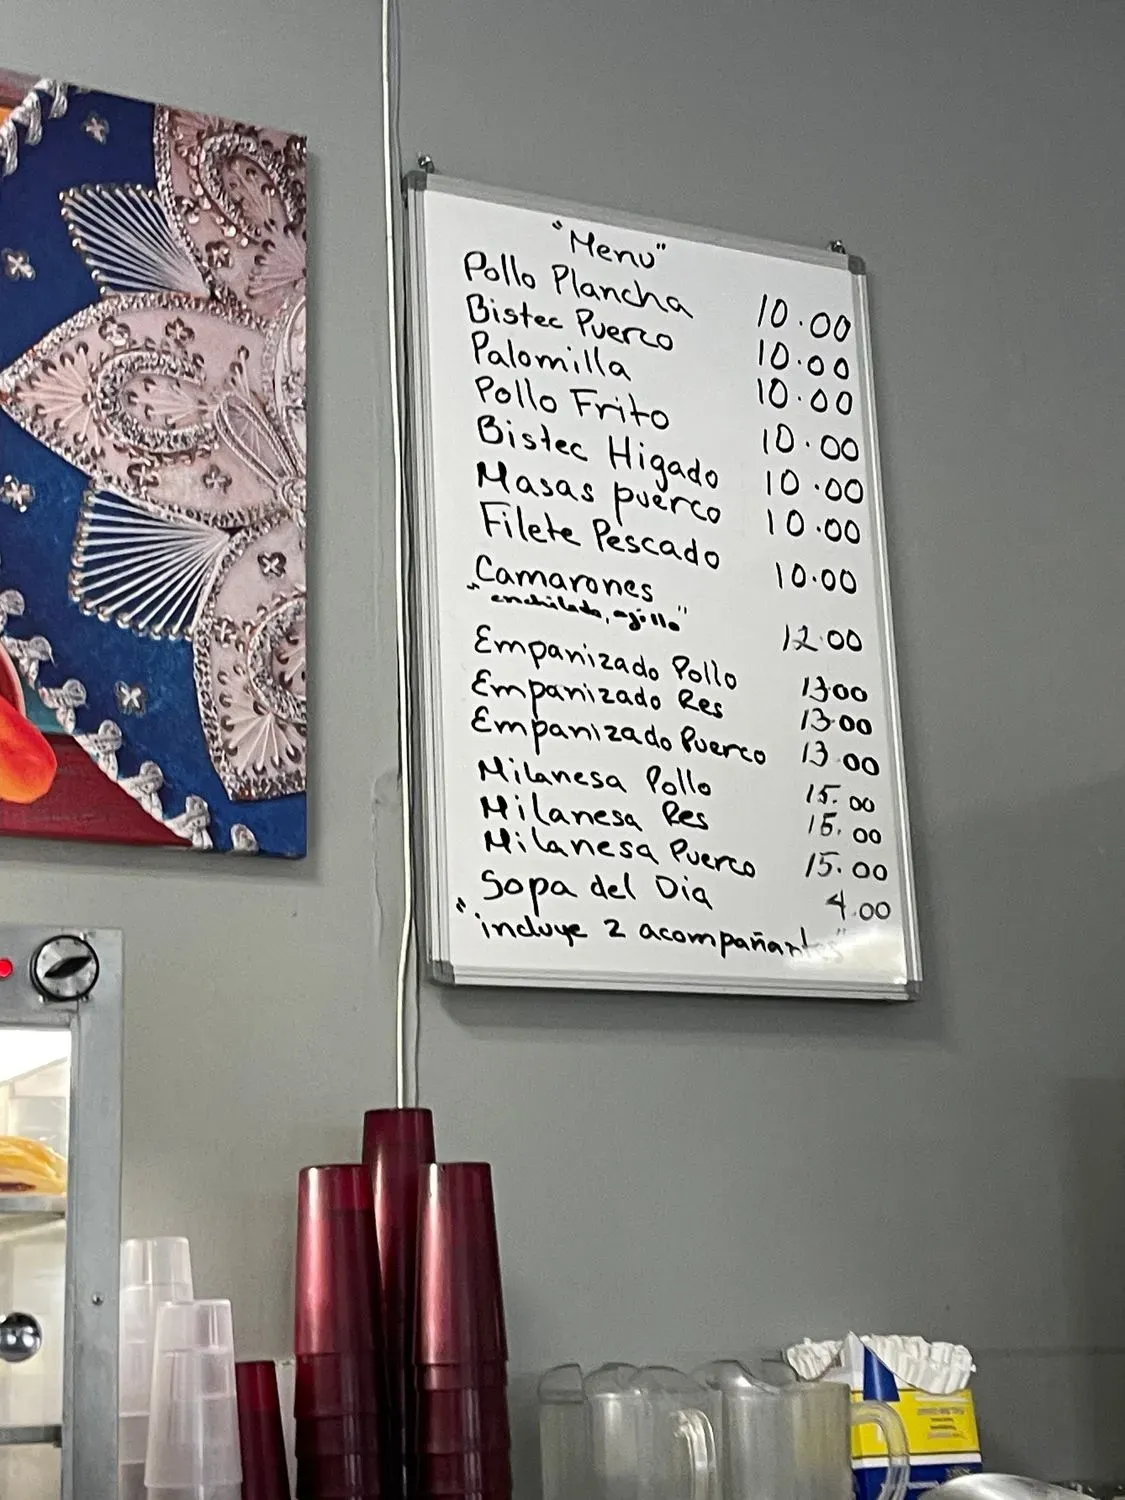 "Menu"
Pollo Plancha 10.00
Bistec Puerco 10.00
Palomilla 10.00
Pollo Frito 10.00
Bistec Higado 10.00
Masas puerco 10.00
Filete Pescado 10.00
Camarones 12.00
"enchilado, ajillo"
Empanizado Pollo 13.00
Empanizado Res 13.00
Empanizado Puerco 13.00
Milanesa Pollo 15.00
Milanesa Res 15.00
Milanesa Puerco 15.00
Sopa del Dia 4.00
"incluye 2 acompañantes"